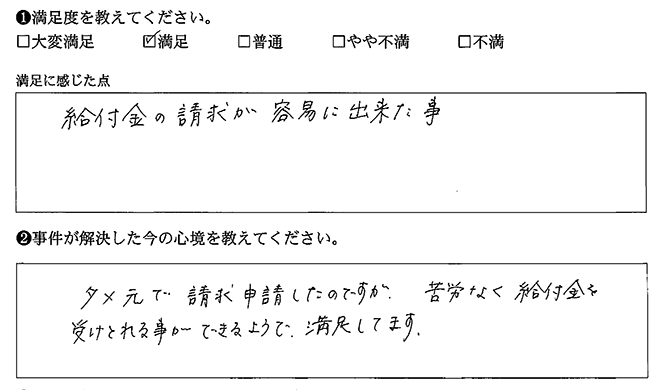 ❶満足度を教えてください。
□大変満足 ☑満足 □普通 □やや不満 □不満
満足に感じた点
給付金の請求が容易に出来た事
❷事件が解決した今の心境を教えてください。
タメ元で請求申請したのですが、苦労なく給付金を
受けとれる事ができるようで、満足してます。